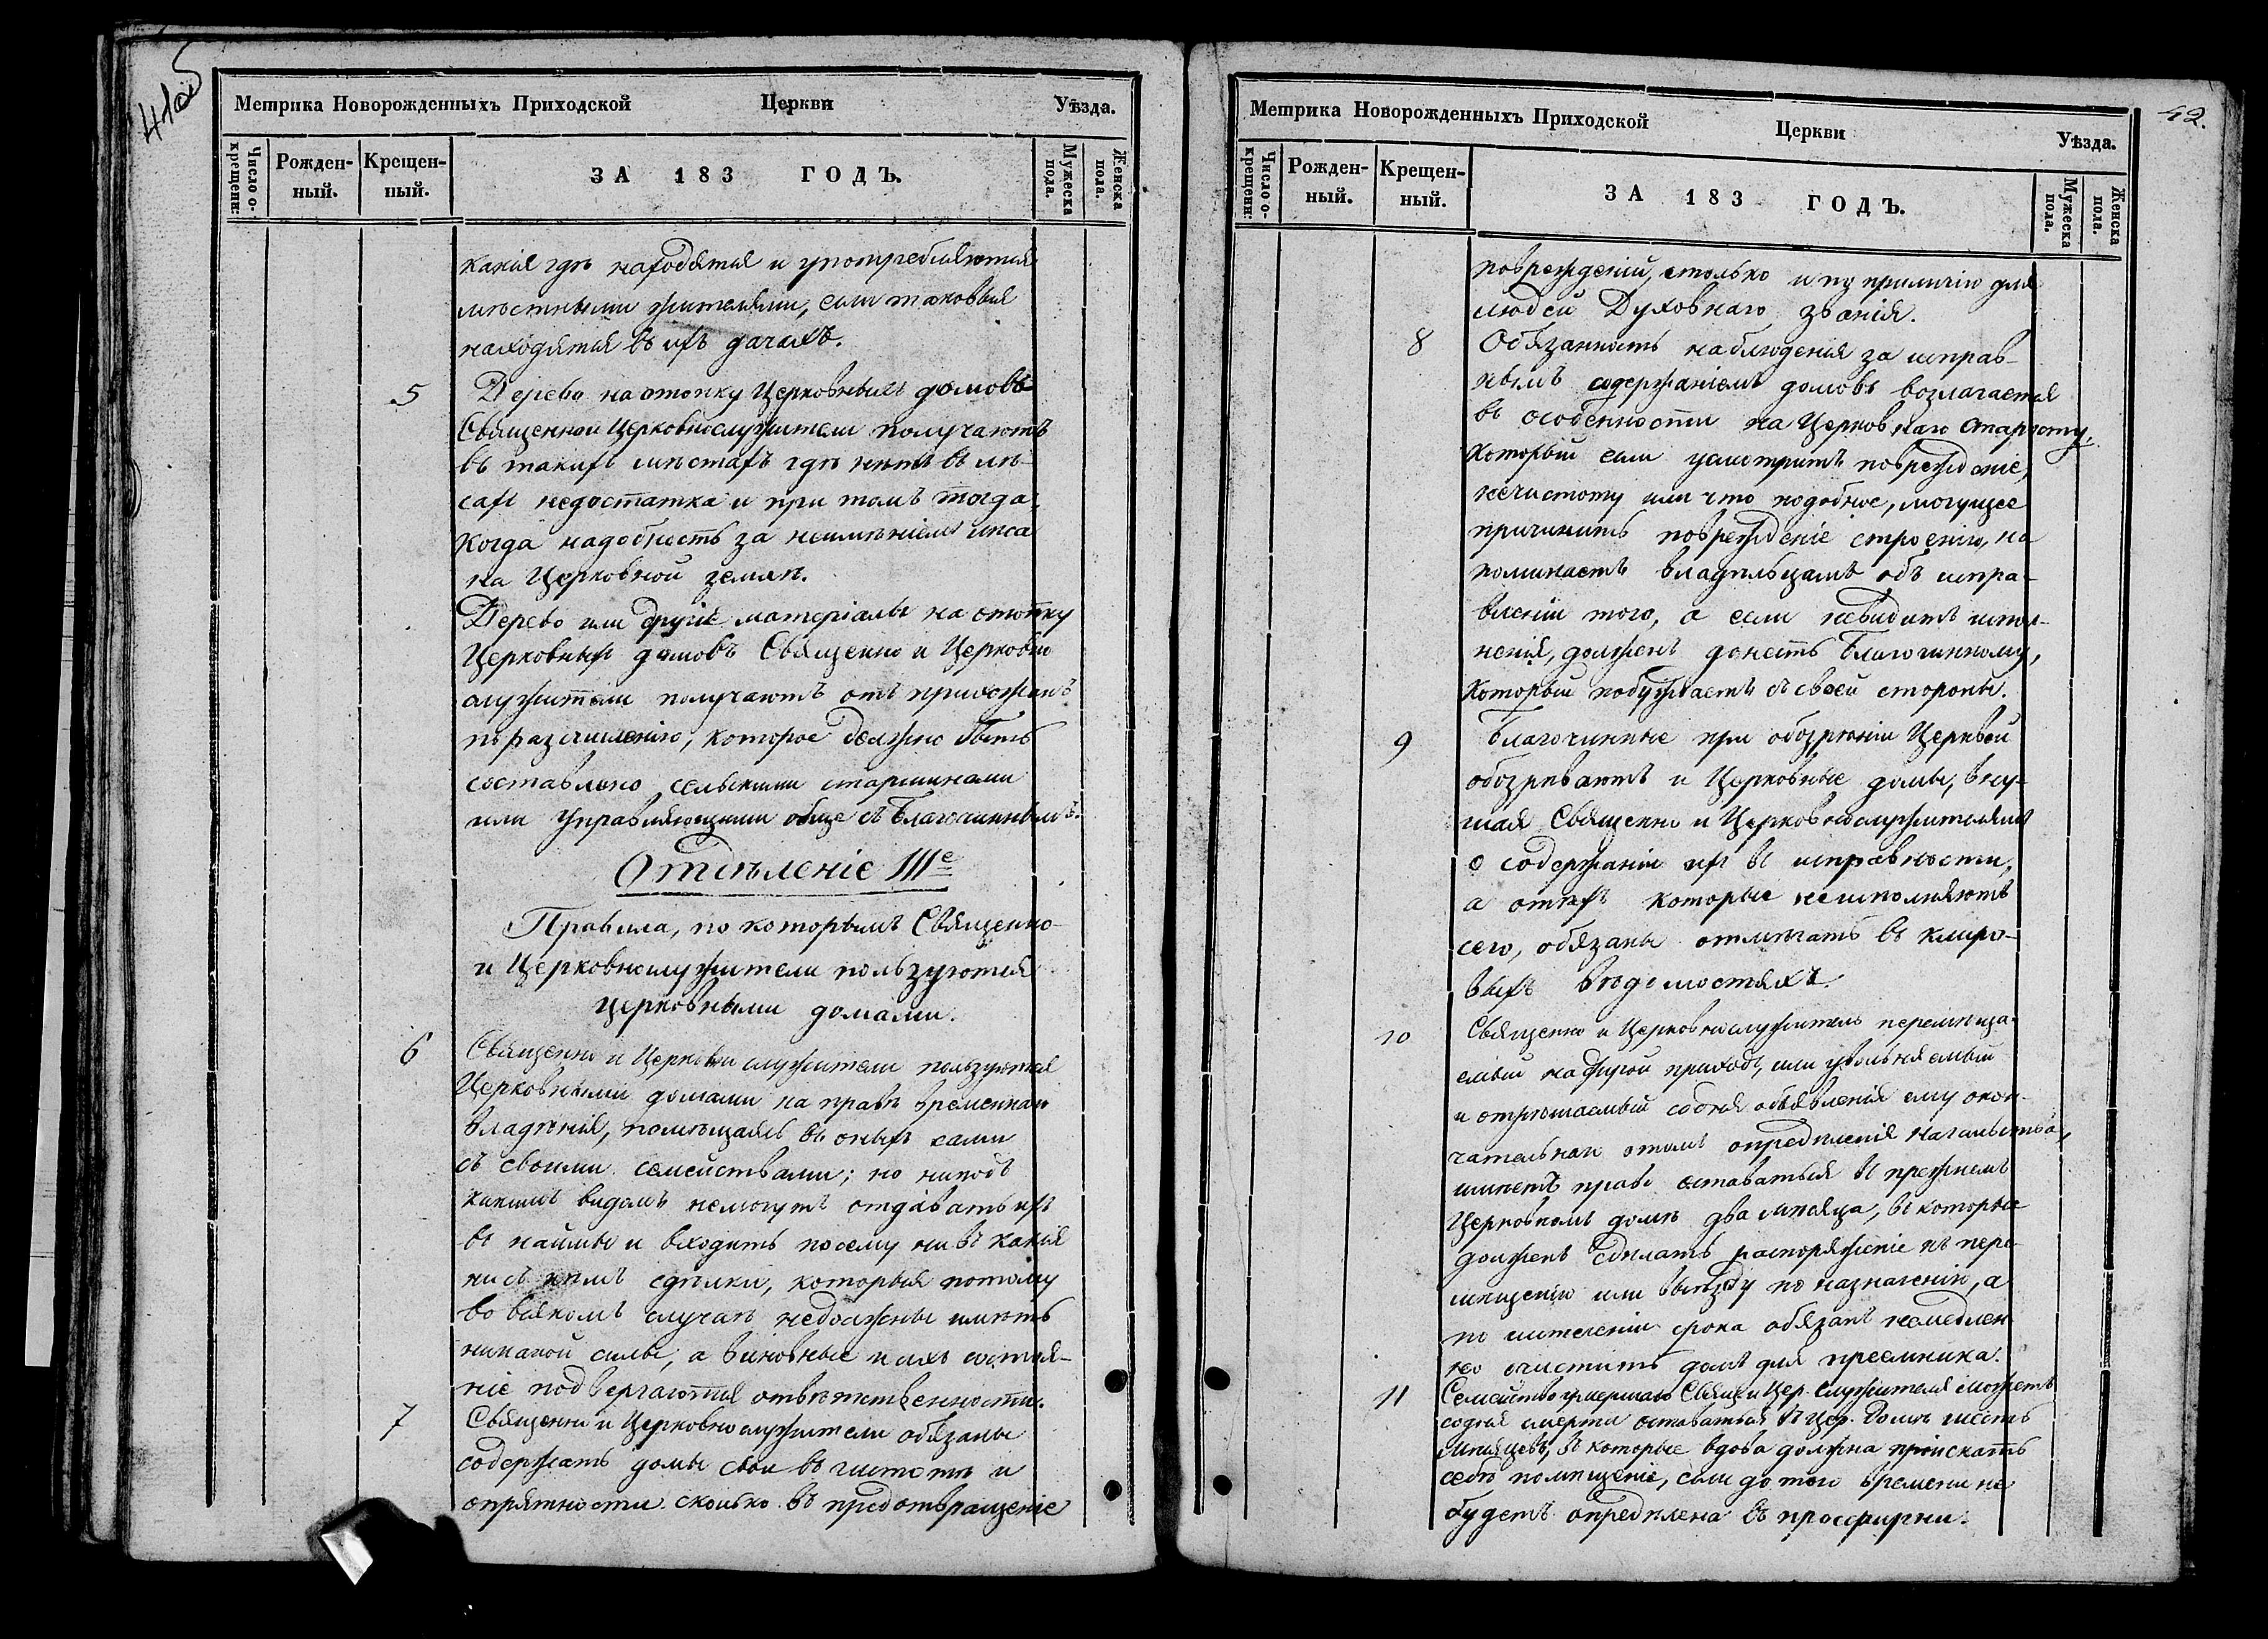 41об
Метрика Новорожденныхъ Приходской Церкви Уѣзда.
Число о-
крещенн:
Рожден-
ный.
Крещен-
ный.
ЗА 183 ГОДЪ.
Мужеска
пола.
Женска
пола.
какія гдѣ находятся и употребляются
мѣстными жителями, если таковыя
находятся въ ихъ дачахъ.
5 Дерево на отопку Церковныхъ домовъ
Священно и Церковнослужители получаютъ
въ такихъ мѣстахъ гдѣ нѣтъ въ лѣ-
сахъ недостатка и при томъ тогда
когда надобность за неимѣніемъ лѣса
на Церковной землѣ.
Дерево или другіе матеріалы на отопку
Церковныхъ домовъ Священно и Церковно
служители получаютъ отъ прихожанъ
по разчисленію, которое должно быть
составлено сельскими старшинами
или управляющими обще съ Благочиннымъ.
Отдѣленіе IIIе
Правила, по которымъ Священно-
и Церковнослужители пользуются
церковными домами.
6 Священно и Церковно служители пользуются
Церковными домами на правѣ временнаго
владѣнія, помѣщаясь въ оныхъ сами
съ своими семействами; но ни подъ
какимъ видомъ не могутъ отдавать ихъ
въ наймы и входить по сему ни въ какія
ни съ кѣмъ сдѣлки, которыя потому
во всякомъ случаѣ не должны имѣть
никакой силы, а виновные
ніе подвергаются отвѣтственности.
7 Священно и Церковно служители обязаны
содержать домы свои въ чистотѣ и
опрятности сколько въ предотвращеніе
42.
Метрика Новорожденныхъ Приходской Церкви Уѣзда.
Число о-
крещенн:
Рожден-
ный.
Крещен-
ный.
ЗА 183 ГОДЪ.
Мужеска
пола.
Женска
пола.
поврежденій, столько и по приличію для
людей Духовнаго званія.
8 Обязанность наблюденія за исправ-
нымъ содержаніемъ домовъ возлагается
въ особенности на Церковнаго Старосту,
который если усмотритъ поврежденіе,
нечистоту или что подобное, могущее
причинить поврежденіе строенію, на
поминаетъ владѣльцамъ объ испра-
вленіи того, а если невидитъ испол-
ненія, долженъ донесть Благочинному,
который побуждаетъ съ своей стороны.
9 Благочинные при обозрѣніи Церквей
обозрѣваютъ и Церковные домы, вну-
шая Священно и Церковнослужителямъ
о содержаніи ихъ въ исправности,
а о тѣхъ которые неисполняютъ
сего, обязаны отмѣчать въ клиро-
выхъ вѣдомостяхъ.
10 Священно и Церковнослужитель перемѣща-
емый на другой приходъ, или увольняемый
и отрѣшаемый со дня объявленія ему окон-
чательнаго о томъ опредѣленія Начальства,
имѣетъ право оставаться въ прежнемъ
Церковномъ домѣ два мѣсяца, въ которые
долженъ сдѣлать распоряженіе къ пере-
мѣщенію или выѣзду по назначенію, а
по истеченіи срока обязанъ немедлен
но очистить домъ для преемника.
11 Семейство умершаго Свящ. и Цер. Служителя можетъ
со дня смерти оставаться въ Цер. Домѣ шесть
мѣсяцевъ, въ которые вдова должна пріискать
себѣ помѣщеніе, если до того времени не
будетъ опредѣлена въ просфирни.